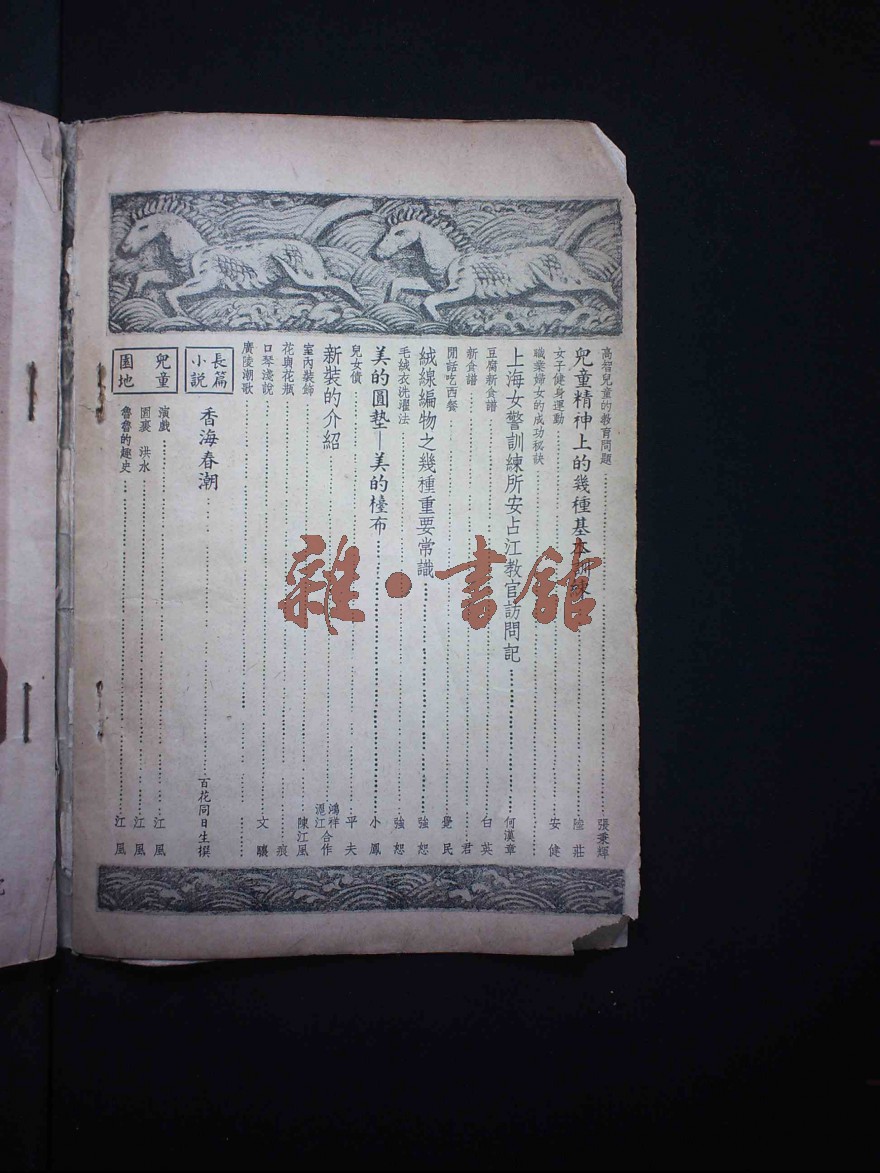 高智兒童的教育問題 張秉輝
兒童精神上的幾種基本訓練 陸莊
女子健身運動 安健
職業婦女的成功秘訣
上海女警訓練所安占江教官訪問記 何漢章
豆腐新食譜 白英
新食譜 君
閒話吃西餐 覺民
絨線編物之幾種重要常識 強恕
毛絨衣洗濯法 強恕
美的圓墊—美的檯布 小鳳
兒女債 平夫
新裝的介紹 鴻祥 江合作
室內裝飾 陳江風
花與花瓶 痕
口琴淺說 文驤
廣陵潮歌
長篇小說
香海春潮 百花同日生撰
兒童園地
演戲 江風
圍裹 洪水 江風
魯魯的趣史 江風
雜·書館